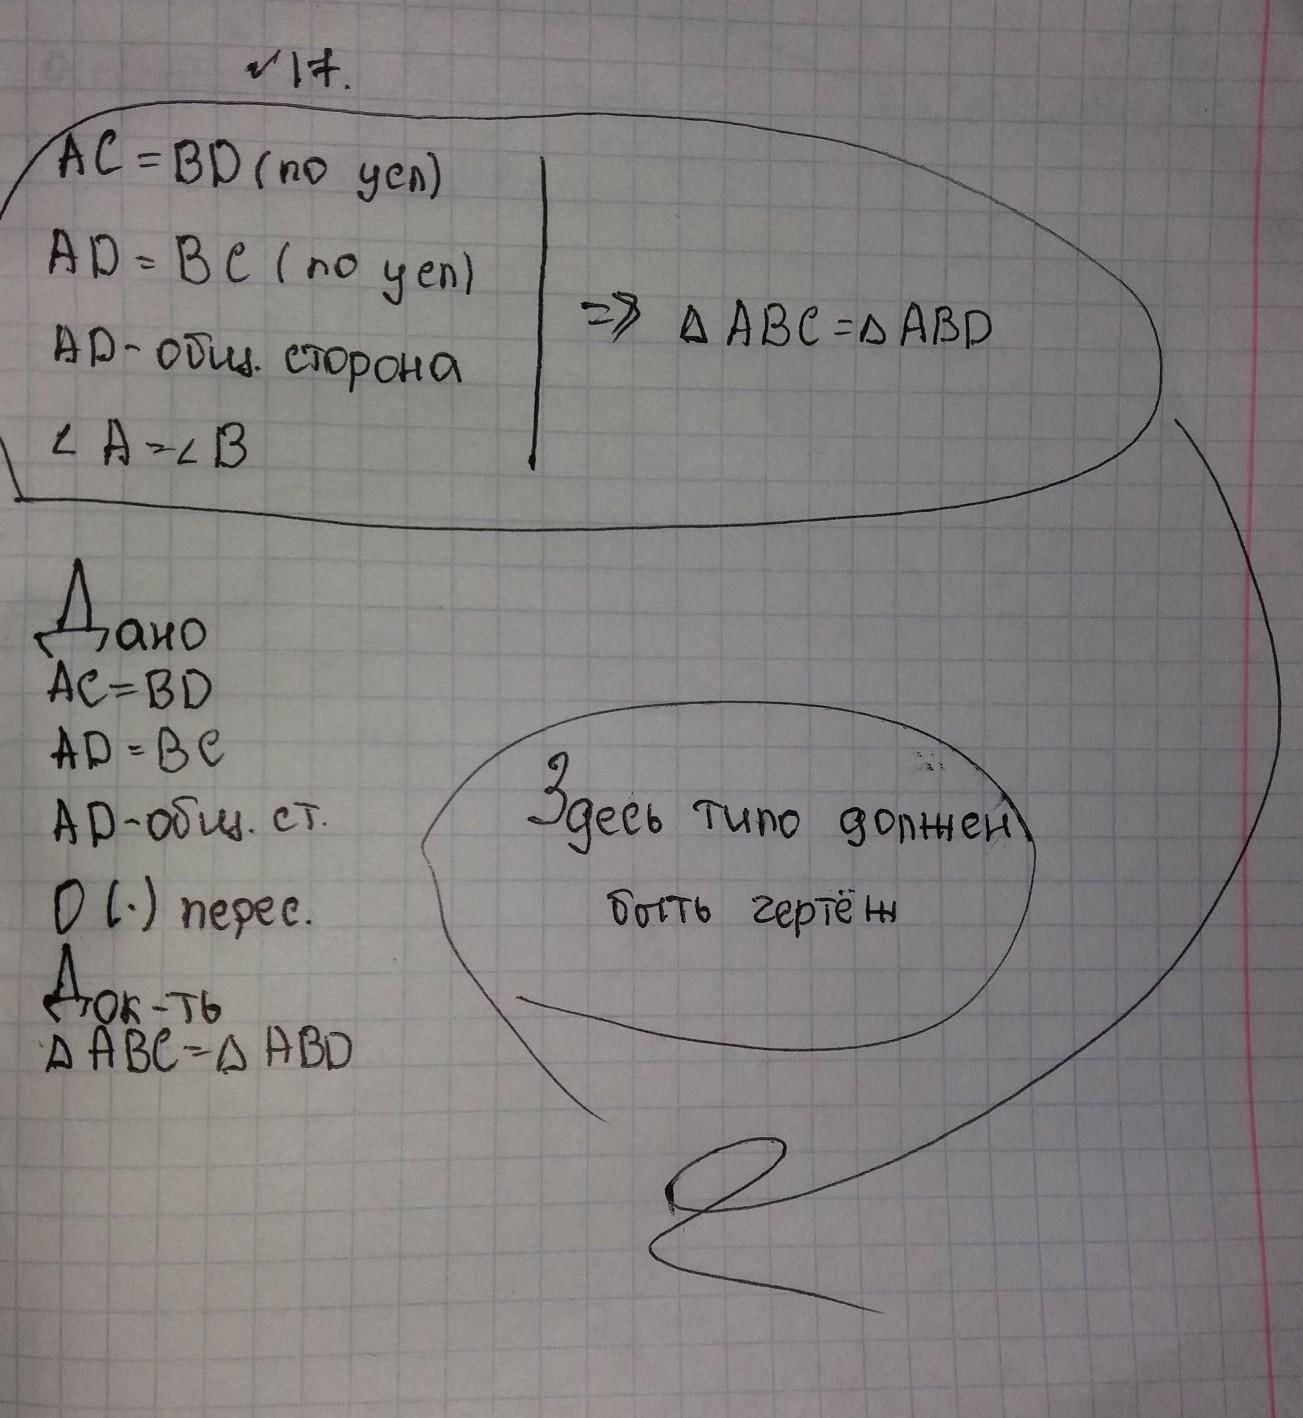 №17.
AC = BD (по усл)
AD = BC (по усл)
AD - общ. сторона
∠ A = ∠ B
=> △ ABC = △ ABD
Дано
AC = BD
AD = BC
AD - общ. ст.
O (·) перес.
Док-ть
△ ABC = △ ABD
Здесь типо должен
быть чертёж